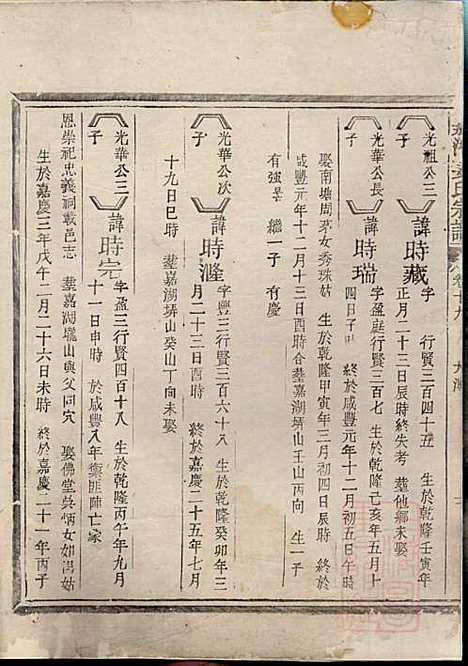 光祖公三子
諱時藏
字 行賢三百四十五 生於乾隆壬寅年
正月二十三日辰時終失考 塟他鄉未娶
光華公長子
諱時瑞
字盈庭行賢三百七 生於乾隆己亥年五月十
四日子時 終於咸豐元年十二月初五日午時
娶南塘周茅女秀珠姑 生於乾隆甲寅年三月初四日辰時 終於
咸豐元年十二月十三日酉時合塟嘉湖塝山壬山丙向 生一子
有強 繼一子 有慶
光華公次子
諱時漋
字豐三行賢三百六十八 生於乾隆癸卯年三
月二十三日酉時 終於嘉慶二十五年七月
十九日巳時 塟嘉湖塝山癸山丁向未娶
光華公三子
諱時宗
字盈三行賢四百十八 生於乾隆丙午年九月
十一日申時 於咸豐八年禦匪陣亡家
恩崇祀忠義祠載邑志 塟嘉湖壠山與父同穴 娶佛堂吳炳女如湯姑
生於嘉慶三年戊午二月二十六日未時 終於嘉慶二十一年丙子
氏宗譜
卷十九